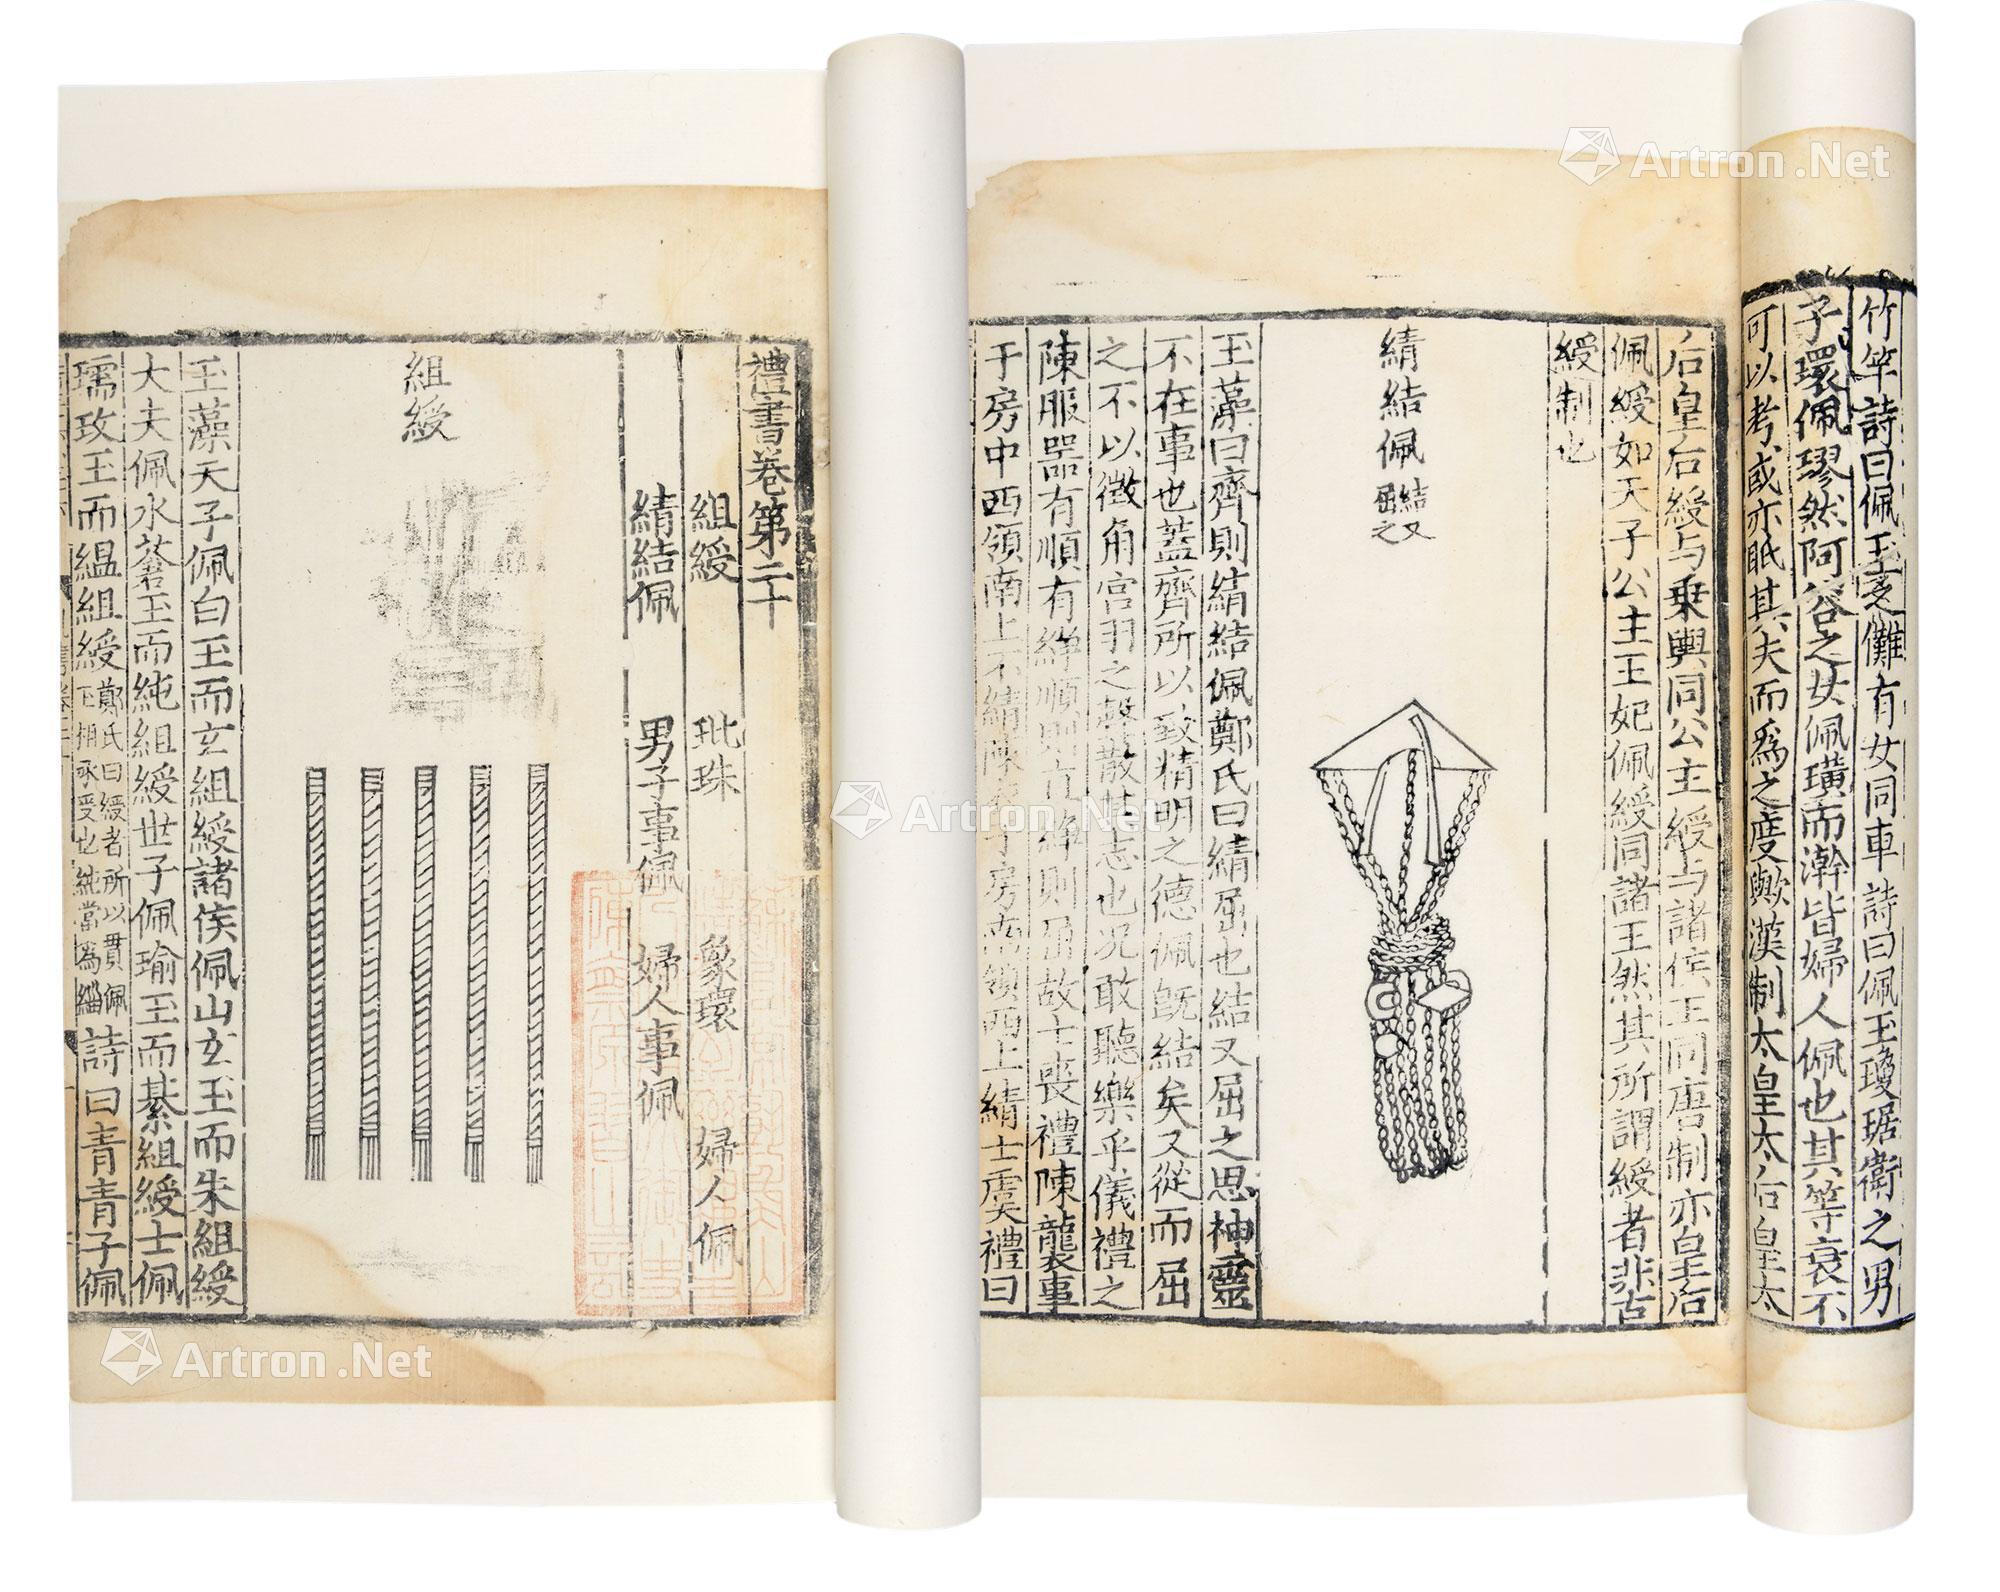 竹竿詩曰佩玉之儺有女同車詩曰佩玉瓊琚衛之男
子環佩璆然阿谷之女佩璜而澣皆婦人佩也其等衰不
可以考或亦眡其夫而為之度歟漢制太皇太后皇太
后皇后綬与乗輿同公主綬与諸侯王同唐制亦皇后
佩綬如天子公主王妃佩綬同諸王然其所謂綬者非古
綬制也
綪結佩結又屈之
玉藻曰齊則綪結佩鄭氏曰綪屈也結又屈之思神靈
不在事也蓋齊所以致精明之德佩旣結矣又從而屈
之不以徵角宮羽之聲散其志也况敢聽樂乎儀禮之
陳服器有順有綪順則直綪則屈故士喪禮陳襲事
于房中西領南上不綪陳衣于房西領西上綪士虞禮曰
禮書卷第二十
組綬 玭珠 象環 婦人佩
綪結佩 男子事佩 婦人事佩
組綬
玉藻天子佩白玉而玄組綬諸侯佩山玄玉而朱組綬
大夫佩水蒼玉而純組綬世子佩瑜玉而綦組綬士佩
瓀玫玉而縕組綬鄭氏曰綬者所以貫佩下相承受也純當爲緇詩曰青青子佩
Artron.Net
Artron.Net
Artron.Net